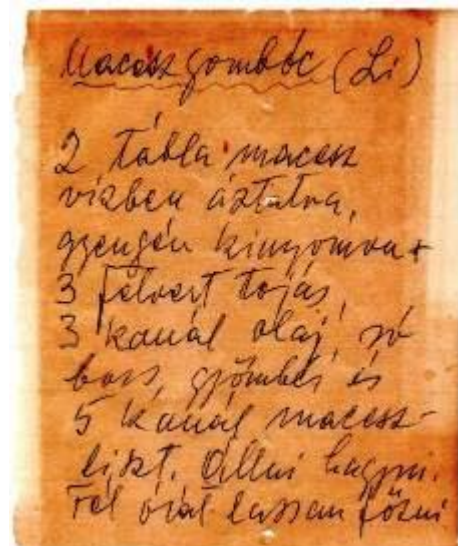 Macesz gombóc (Li)
2 tábla macesz
vízben áztatva,
gyengén kinyomva +
3 felvert tojás,
3 kanál olaj, só
bors, gyömbér és
5 kanál macesz-
liszt. Állni hagyni.
Fél órát lassan főzni